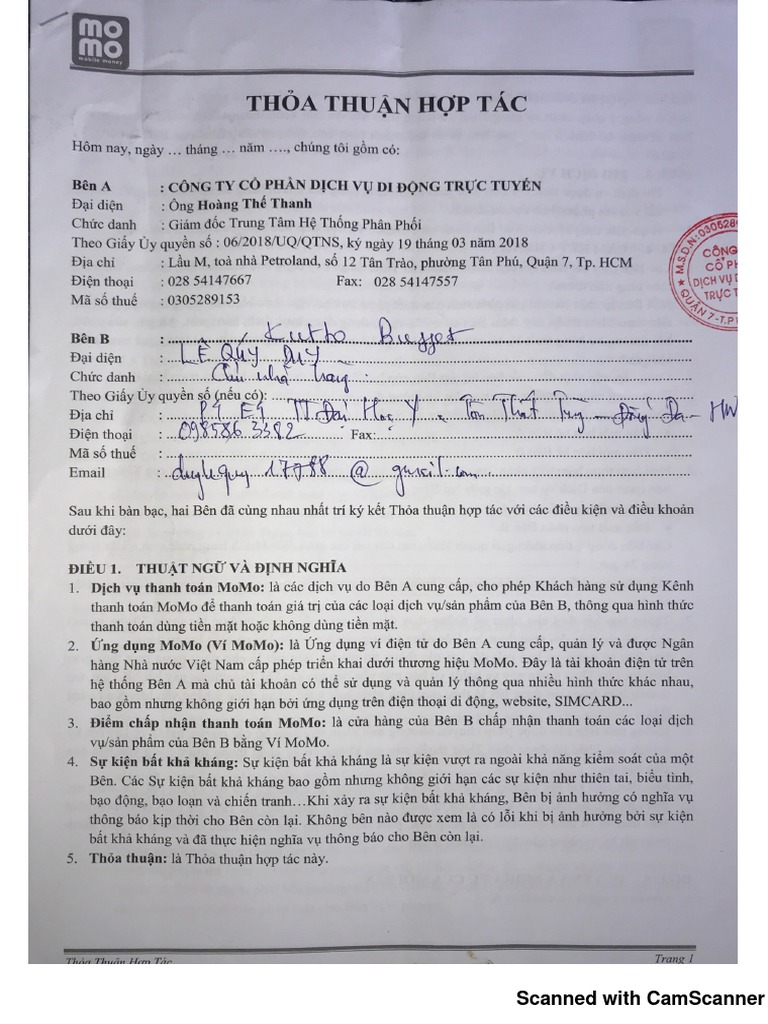 mo
mo
mobile money
THỎA THUẬN HỢP TÁC
Hôm nay, ngày … tháng … năm …., chúng tôi gồm có:
Bên A : CÔNG TY CỔ PHẦN DỊCH VỤ DI ĐỘNG TRỰC TUYẾN
Đại diện : Ông Hoàng Thế Thanh
Chức danh : Giám đốc Trung Tâm Hệ Thống Phân Phối
Theo Giấy Ủy quyền số : 06/2018/UQ/QTNS, ký ngày 19 tháng 03 năm 2018
Địa chỉ : Lầu M, toà nhà Petroland, số 12 Tân Trào, phường Tân Phú, Quận 7, Tp. HCM
Điện thoại : 028 54147667 Fax: 028 54147557
Mã số thuế : 0305289153
M.S.D.N: 030528
CÔNG
CỔ PH
DỊCH VỤ D
TRỰC T
QUẬN 7-T.P
Bên B : Kutho
Đại diện : LÊ QUÝ DUY
Chức danh : Chủ nhà hàng
Theo Giấy Ủy quyền số (nếu có):
Địa chỉ : P4 E4 TT Đại Học Y - Tôn Thất Tùng - Đống Đa - HN
Điện thoại : 0985863382 Fax:
Mã số thuế :
Email : duylequy17988@gmail.com
Sau khi bàn bạc, hai Bên đã cùng nhau nhất trí ký kết Thỏa thuận hợp tác với các điều kiện và điều khoản
dưới đây:
ĐIỀU 1. THUẬT NGỮ VÀ ĐỊNH NGHĨA
1. Dịch vụ thanh toán MoMo: là các dịch vụ do Bên A cung cấp, cho phép Khách hàng sử dụng Kênh
thanh toán MoMo để thanh toán giá trị của các loại dịch vụ/sản phẩm của Bên B, thông qua hình thức
thanh toán dùng tiền mặt hoặc không dùng tiền mặt.
2. Ứng dụng MoMo (Ví MoMo): là Ứng dụng ví điện tử do Bên A cung cấp, quản lý và được Ngân
hàng Nhà nước Việt Nam cấp phép triển khai dưới thương hiệu MoMo. Đây là tài khoản điện tử trên
hệ thống Bên A mà chủ tài khoản có thể sử dụng và quản lý thông qua nhiều hình thức khác nhau,
bao gồm nhưng không giới hạn bởi ứng dụng trên điện thoại di động, website, SIMCARD...
3. Điểm chấp nhận thanh toán MoMo: là cửa hàng của Bên B chấp nhận thanh toán các loại dịch
vụ/sản phẩm của Bên B bằng Ví MoMo.
4. Sự kiện bất khả kháng: Sự kiện bất khả kháng là sự kiện vượt ra ngoài khả năng kiểm soát của một
Bên. Các Sự kiện bất khả kháng bao gồm nhưng không giới hạn các sự kiện như thiên tai, biểu tình,
bạo động, bạo loạn và chiến tranh…Khi xảy ra sự kiện bất khả kháng, Bên bị ảnh hưởng có nghĩa vụ
thông báo kịp thời cho Bên còn lại. Không bên nào được xem là có lỗi khi bị ảnh hưởng bởi sự kiện
bất khả kháng và đã thực hiện nghĩa vụ thông báo cho Bên còn lại.
5. Thỏa thuận: là Thỏa thuận hợp tác này.
Thỏa Thuận Hợp Tác Trang 1
Scanned with CamScanner